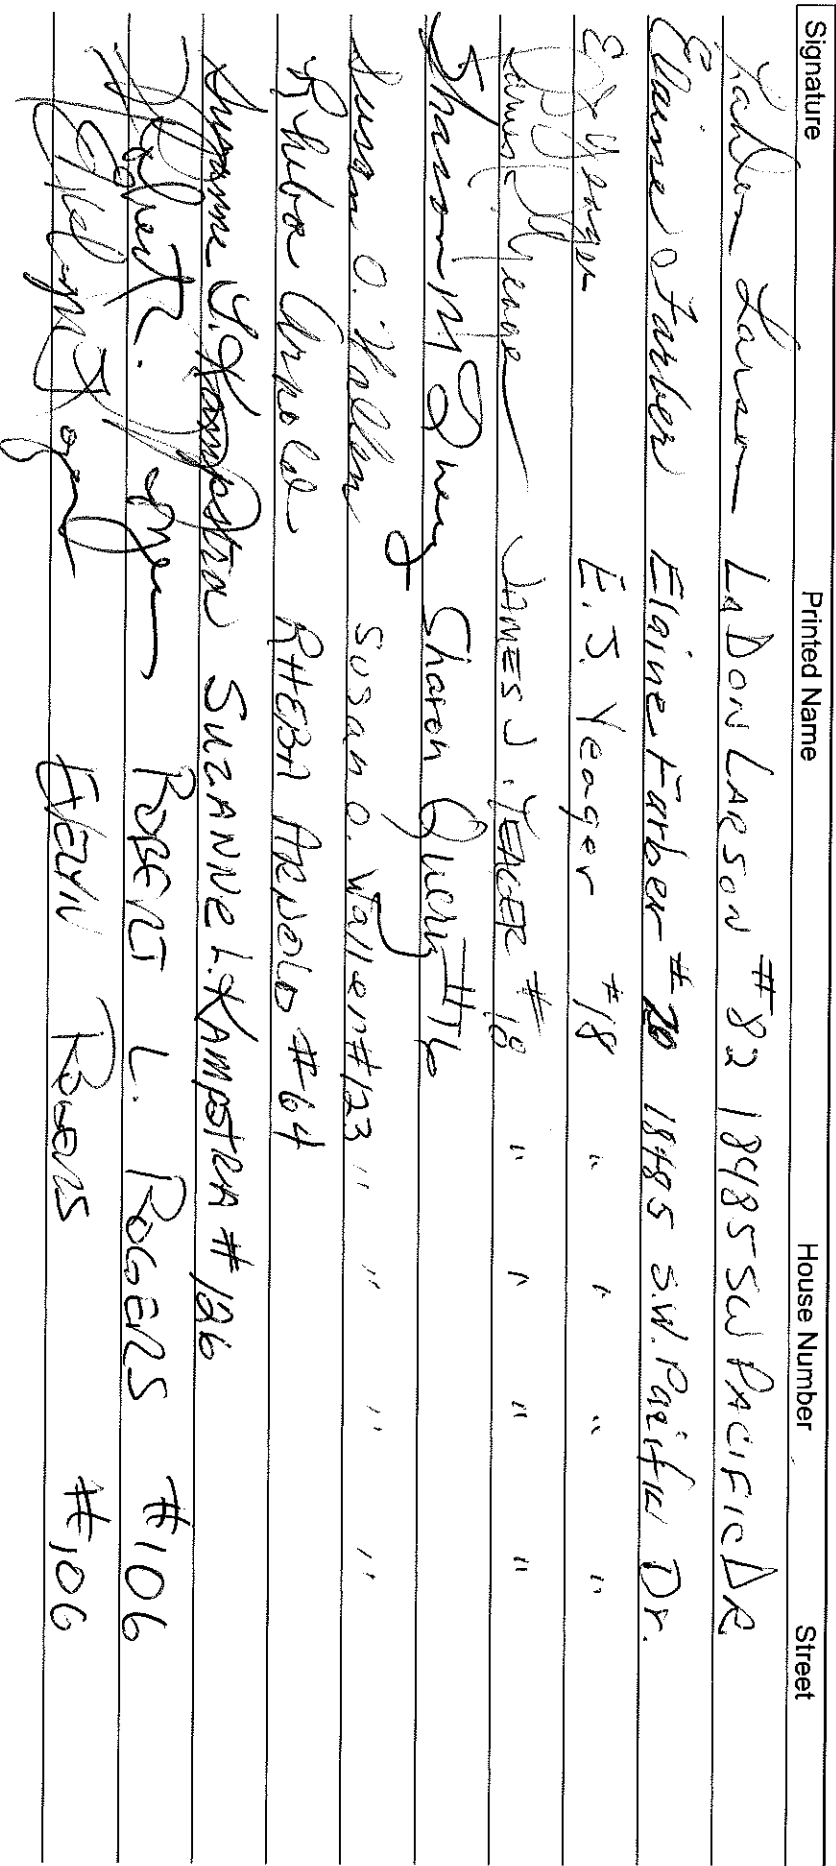 Signature Printed Name House Number Street
LaDon Larson LADON LARSON #82 18485 SW PACIFIC DR
Elaine Farber Elaine Farber #20 18485 S.W. Pacific Dr.
E J Yeager E.J. Yeager #18 " " " "
James J. Yeager JAMES J. YEAGER #18 " " " "
Sharon M Query Sharon Query #76
Susan O. Wallen Susan O. Wallen #123 " " " "
Rheba Arnold RHEBA ARNOLD #64
Suzanne I. Kampstra SUZANNE I. KAMPSTRA #126
Robert ROBERT L. ROGERS #106
Evelyn EVELYN ROGERS #106